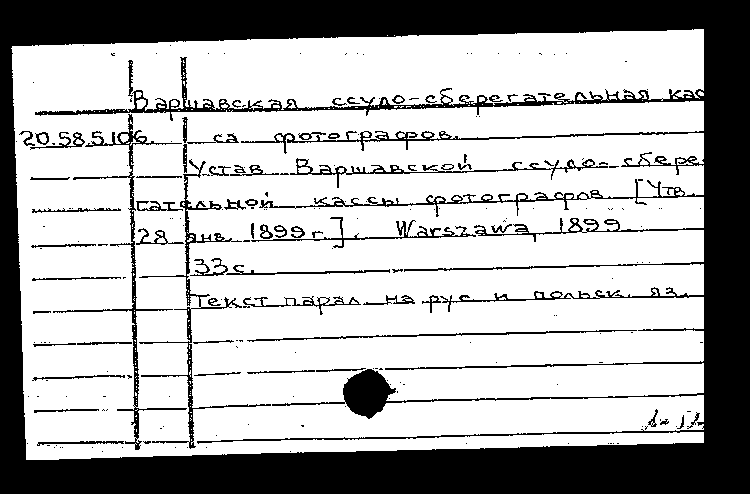 Варшавская ссудо-сберегательная кас
20.58.5.106. са фотографов.
Устав Варшавской ссудо-сбере-
гательной кассы фотографов [Утв.
28 янв. 1899 г.]. Warszawa, 1899.
33 с.
Текст парал. на рус и польск. яз.